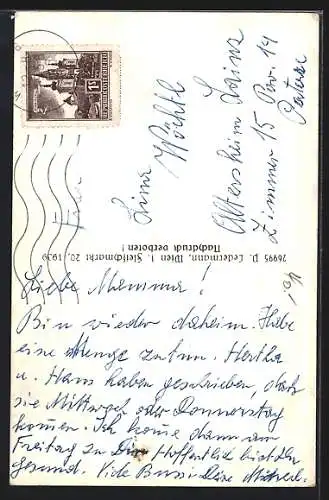 Frau
Lina Wöchtl
Altersheim Lainz
Zimmer 15
REPUBLIK ÖSTERREICH
76995 P. Ledermann, Wien I. Fleischmarkt 20, 1939
Nachdruck verboten!
Liebe Mamma!
Bin wieder daheim. Habe
eine Menge zu tun. Hertha
u. Hans haben geschrieben, daß
sie Mittwoch oder Donnerstag
kommen. Ich komme dann am
Freitag zu Dir. Hoffentlich bist du
gesund. Viele Bussi Deine